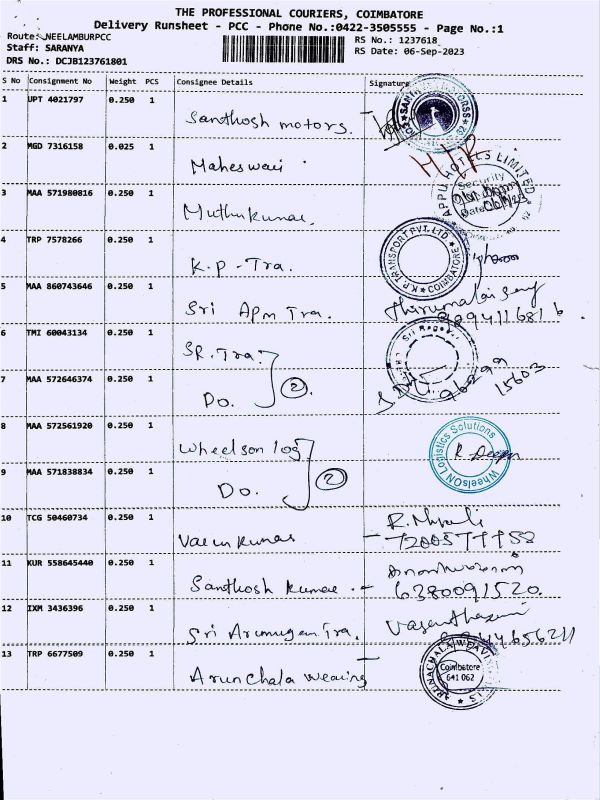 THE PROFESSIONAL COURIERS, COIMBATORE
Delivery Runsheet - PCC - Phone No.:0422-3505555 - Page No.:1
Route: NEELAMBURPCC
RS No.: 1237618
Staff: SARANYA
RS Date: 06-Sep-2023
DRS No.: DCJB123761801
S No Consignment No Weight PCS Consignee Details Signature
1 UPT 4021797 0.250 1 Santhosh motors.
2 MGD 7316158 0.025 1 Maheswari
APPU HOTELS LIMITED
Security
Date
3 MAA 571980816 0.250 1 Muthukumar.
4 TRP 7578266 0.250 1 K.P - Tra.
K.P. TRANSPORT PVT. LTD. COIMBATORE
5 MAA 860743646 0.250 1 Sri Apm Tra.
9894116816
6 TMI 60043134 0.250 1 SR. Tra.
7 MAA 572646374 0.250 1 Do. 2
96299
15603
8 MAA 572561920 0.250 1 Wheelson log
WheelsON Logistics Solutions
R. Deepa
9 MAA 571838834 0.250 1 Do. 2
10 TCG 50460734 0.250 1 Varun kumar
11 KUR 558645440 0.250 1 Santhosh kumar -
6380091520.
12 IXM 3436396 0.250 1 Sri Arumugam Tra.
13 TRP 6677509 0.250 1 Arunchala weaving
ARUNACHALA WEAVING
Coimbatore
641 062